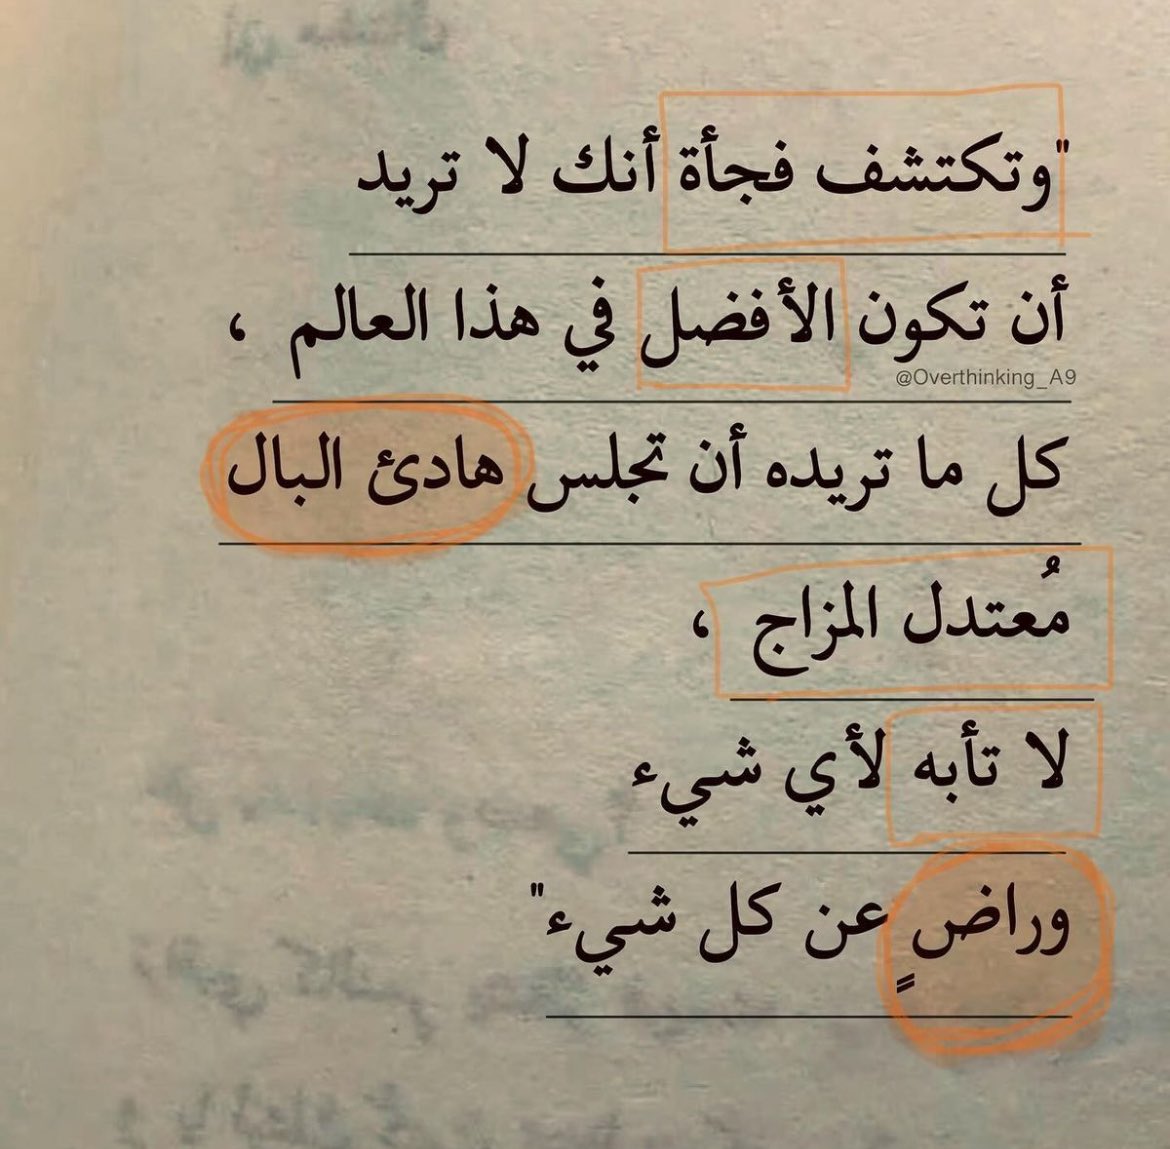 "وتكتشف فجأة أنك لا تريد
أن تكون الأفضل في هذا العالم ،
@Overthinking_A9
كل ما تريده أن تجلس هادئ البال
مُعتدل المزاج ،
لا تأبه لأي شيء
وراضٍ عن كل شيء"